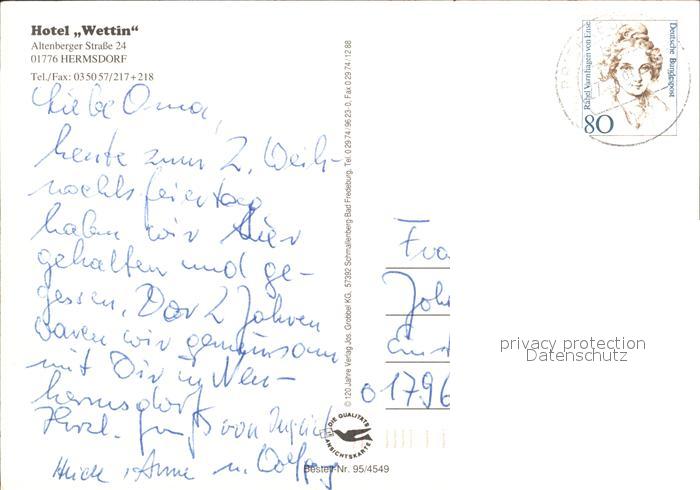 Hotel „Wettin“
Altenberger Straße 24
01776 HERMSDORF
Tel./Fax: 035057/217+218
Liebe Oma,
heute zum 2. Weih-
nachtsfeiertag
haben wir hier
gehalten und ge-
gessen. Vor 2 Jahren
waren wir gemeinsam
mit Dir in Neu-
hermsdorf.
Herzl. Grüße von Ingrid
Heide, Anne u. Wolfgang
© 120 Jahre Verlag Jos. Grobbel KG, 57392 Schmallenberg-Bad Fredeburg, Tel. 0 29 74 / 96 23-0, Fax 0 29 74 / 12 88
DIE QUALITÄTS
ANSICHTSKARTE
Bestell-Nr. 95/4549
Rahel Varnhagen von Ense
Deutsche Bundespost
80
Fra
Joh
01796
privacy protection
Datenschutz